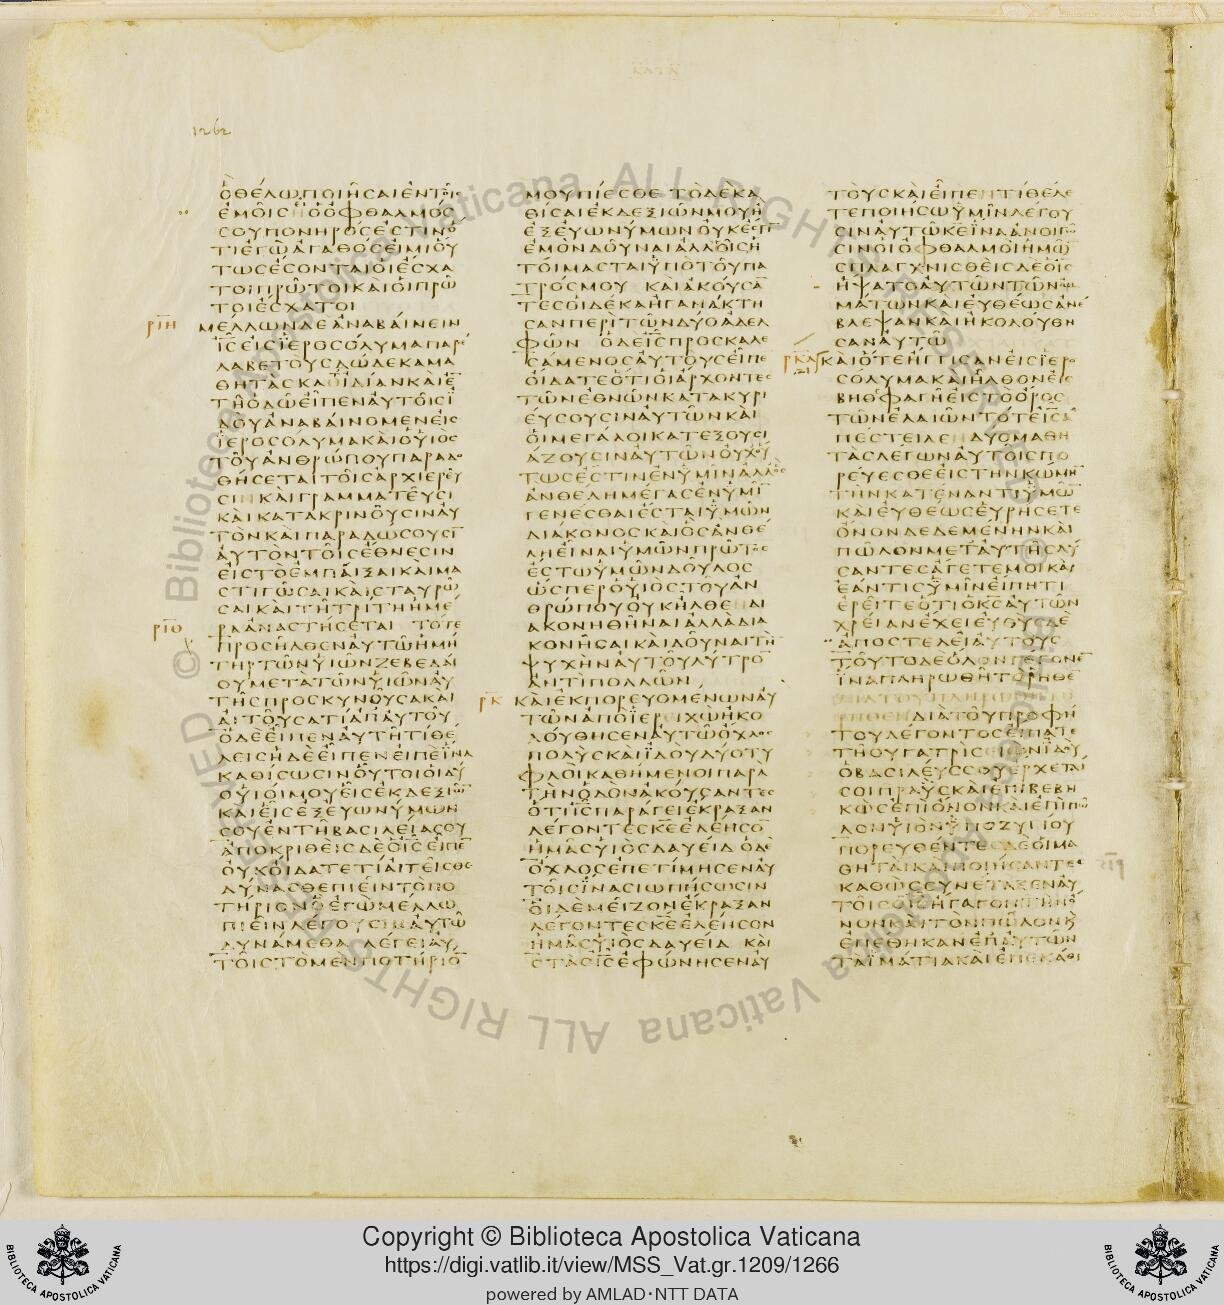 1262
ΚΑΤΑ
ΟΘΕΛΩΠΟΙΗΣΑΙΕΝΤΟΙΣ
ΕΜΟΙΣΗΟΟΦΘΑΛΜΟΣ
ΣΟΥΠΟΝΗΡΟΣΕΣΤΙΝΟ
ΤΙΕΓΩΑΓΑΘΟΣΕΙΜΙΟΥ
ΤΩΣΕΣΟΝΤΑΙΟΙΕΣΧΑ
ΤΟΙΠΡΩΤΟΙΚΑΙΟΙΠΡΩ
ΤΟΙΕΣΧΑΤΟΙ
ΡΙΗ ΜΕΛΛΩΝΔΕΑΝΑΒΑΙΝΕΙΝ
ΙΣΕΙΣΙΕΡΟΣΟΛΥΜΑΠΑΡΕ
ΛΑΒΕΤΟΥΣΔΩΔΕΚΑΜΑ
ΘΗΤΑΣΚΑΘΙΔΙΑΝΚΑΙΕ
ΤΗΟΔΩΕΙΠΕΝΑΥΤΟΙΣΙ
ΔΟΥΑΝΑΒΑΙΝΟΜΕΝΕΙΣ
ΙΕΡΟΣΟΛΥΜΑΚΑΙΟΥΙΟΣ
ΤΟΥΑΝΘΡΩΠΟΥΠΑΡΑΔΟ
ΘΗΣΕΤΑΙΤΟΙΣΑΡΧΙΕΡΕΥ
ΣΙΝΚΑΙΓΡΑΜΜΑΤΕΥΣΙ
ΚΑΙΚΑΤΑΚΡΙΝΟΥΣΙΝΑΥ
ΤΟΝΚΑΙΠΑΡΑΔΩΣΟΥΣΙ
ΑΥΤΟΝΤΟΙΣΕΘΝΕΣΙΝ
ΕΙΣΤΟΕΜΠΑΙΞΑΙΚΑΙΜΑ
ΣΤΙΓΩΣΑΙΚΑΙΣΤΑΥΡΩ
ΣΑΙΚΑΙΤΗΤΡΙΤΗΗΜΕ
ΡΙΘ ΡΑΑΝΑΣΤΗΣΕΤΑΙ ΤΟΤΕ
ΠΡΟΣΗΛΘΕΝΑΥΤΩΗΜΗ
ΤΗΡΤΩΝΥΙΩΝΖΕΒΕΔΑΙ
ΟΥΜΕΤΑΤΩΝΥΙΩΝΑΥ
ΤΗΣΠΡΟΣΚΥΝΟΥΣΑΚΑΙ
ΑΙΤΟΥΣΑΤΙΑΠΑΥΤΟΥ
ΟΔΕΕΙΠΕΝΑΥΤΗΤΙΘΕ
ΛΕΙΣΗΔΕΕΙΠΕΝΕΙΠΕΙΝΑ
ΚΑΘΙΣΩΣΙΝΟΥΤΟΙΟΙΔΥ
ΟΥΙΟΙΜΟΥΕΙΣΕΚΔΕΞΙΩ
ΚΑΙΕΙΣΕΞΕΥΩΝΥΜΩΝ
ΣΟΥΕΝΤΗΒΑΣΙΛΕΙΑΣΟΥ
ΑΠΟΚΡΙΘΕΙΣΔΕΟΙΣΕΙΠΕ
ΟΥΚΟΙΔΑΤΕΤΙΑΙΤΕΙΣΘΕ
ΔΥΝΑΣΘΕΠΙΕΙΝΤΟΠΟ
ΤΗΡΙΟΝΟΕΓΩΜΕΛΛΩ
ΠΙΕΙΝΛΕΓΟΥΣΙΝΑΥΤΩ
ΔΥΝΑΜΕΘΑ ΛΕΓΕΙΑΥ
ΤΟΙΣΤΟΜΕΝΠΟΤΗΡΙΟ
ΜΟΥΠΙΕΣΘΕ ΤΟΔΕΚΑ
ΘΙΣΑΙΕΚΔΕΞΙΩΝΜΟΥΗ
ΕΞΕΥΩΝΥΜΩΝΟΥΚΕΣΤΙ
ΕΜΟΝΔΟΥΝΑΙΑΛΛΟΙΣΗ
ΤΟΙΜΑΣΤΑΙΥΠΟΤΟΥΠΑ
ΤΡΟΣΜΟΥ ΚΑΙΑΚΟΥΣΑ
ΤΕΣΟΙΔΕΚΑΗΓΑΝΑΚΤΗ
ΣΑΝΠΕΡΙΤΩΝΔΥΟΑΔΕΛ
ΦΩΝ ΟΔΕΙΣΠΡΟΣΚΑΛΕ
ΣΑΜΕΝΟΣΑΥΤΟΥΣΕΙΠΕ
ΟΙΔΑΤΕΟΤΙΟΙΑΡΧΟΝΤΕΣ
ΤΩΝΕΘΝΩΝΚΑΤΑΚΥΡΙ
ΕΥΣΟΥΣΙΝΑΥΤΩΝΚΑΙ
ΟΙΜΕΓΑΛΟΙΚΑΤΕΞΟΥΣΙ
ΑΖΟΥΣΙΝΑΥΤΩΝΟΥΧΟΥ
ΤΩΣΕΣΤΙΝΕΝΥΜΙΝΑΛΛΟΣ
ΑΝΘΕΛΗΜΕΓΑΣΕΝΥΜΙ
ΓΕΝΕΣΘΑΙΕΣΤΑΙΥΜΩΝ
ΔΙΑΚΟΝΟΣΚΑΙΟΣΑΝΘΕ
ΛΗΕΙΝΑΙΥΜΩΝΠΡΩΤΟΣ
ΕΣΤΩΥΜΩΝΔΟΥΛΟΣ
ΩΣΠΕΡΟΥΙΟΣΤΟΥΑΝ
ΘΡΩΠΟΥΟΥΚΗΛΘΕΔΙΑ
ΑΚΟΝΗΘΗΝΑΙΑΛΛΑΔΙΑ
ΚΟΝΗΣΑΙΚΑΙΔΟΥΝΑΙΤΗ
ΨΥΧΗΝΑΥΤΟΥΛΥΤΡΟ
ΑΝΤΙΠΟΛΛΩΝ
ΡΚ ΚΑΙΕΚΠΟΡΕΥΟΜΕΝΩΝΑΥ
ΤΩΝΑΠΟΙΕΡΕΙΧΩΗΚΟ
ΛΟΥΘΗΣΕΝΑΥΤΩΟΧΛΟΣ
ΠΟΛΥΣΚΑΙΙΔΟΥΔΥΟΤΥ
ΦΛΟΙΚΑΘΗΜΕΝΟΙΠΑΡΑ
ΤΗΝΟΔΟΝΑΚΟΥΣΑΝΤΕΣ
ΟΤΙΙΣΠΑΡΑΓΕΙΕΚΡΑΞΑΝ
ΛΕΓΟΝΤΕΣΚΕΕΛΕΗΣΟ
ΗΜΑΣΥΙΟΣΔΑΥΕΙΔ ΟΔΕ
ΟΧΛΟΣΕΠΕΤΙΜΗΣΕΝΑΥ
ΤΟΙΣΙΝΑΣΙΩΠΗΣΩΣΙΝ
ΟΙΔΕΜΕΙΖΟΝΕΚΡΑΞΑΝ
ΛΕΓΟΝΤΕΣΚΕΕΛΕΗΣΟΝ
ΗΜΑΣΥΙΟΣΔΑΥΕΙΔ ΚΑΙ
ΣΤΑΣΟΙΣΕΦΩΝΗΣΕΝΑΥ
ΤΟΥΣΚΑΙΕΙΠΕΝΤΙΘΕΛΕ
ΤΕΠΟΙΗΣΩΥΜΙΝΛΕΓΟΥ
ΣΙΝΑΥΤΩΚΕΙΝΑΑΝΟΙΓΩ
ΣΙΝΟΙΟΦΘΑΛΜΟΙΗΜΩ
ΣΠΛΑΓΧΝΙΣΘΕΙΣΔΕΟΙΣ
ΗΨΑΤΟΑΥΤΩΝΤΩΝΟΜ
ΜΑΤΩΝΚΑΙΕΥΘΕΩΣΑΝΕ
ΒΛΕΨΑΝΚΑΙΗΚΟΛΟΥΘΗ
ΣΑΝΑΥΤΩ
ΡΚΑ ΚΑΙΟΤΕΗΓΓΙΣΑΝΕΙΣΙΕΡΟ
ΣΟΛΥΜΑΚΑΙΗΛΘΟΝΕΙΣ
ΒΗΘΦΑΓΗΕΙΣΤΟΟΡΟΣ
ΤΩΝΕΛΑΙΩΝΤΟΤΕΙΣΑ
ΠΕΣΤΕΙΛΕΝΔΥΟΜΑΘΗ
ΤΑΣΛΕΓΩΝΑΥΤΟΙΣΠΟ
ΡΕΥΕΣΘΕΕΙΣΤΗΝΚΩΜΗ
ΤΗΝΚΑΤΕΝΑΝΤΙΥΜΩ
ΚΑΙΕΥΘΕΩΣΕΥΡΗΣΕΤΕ
ΟΝΟΝΔΕΔΕΜΕΝΗΝΚΑΙ
ΠΩΛΟΝΜΕΤΑΥΤΗΣΛΥ
ΣΑΝΤΕΣΑΓΕΤΕΜΟΙΚΑΙ
ΕΑΝΤΙΣΥΜΙΝΕΙΠΗΤΙ
ΕΡΕΙΤΕΟΤΙΟΚΣΑΥΤΩΝ
ΧΡΕΙΑΝΕΧΕΙΕΥΘΥΣΔΕ
ΑΠΟΣΤΕΛΕΙΑΥΤΟΥΣ
ΤΟΥΤΟΔΕΟΛΟΝΓΕΓΟΝΕ
ΙΝΑΠΛΗΡΩΘΗΤΟΡΗΘΕ
ΔΙΑΤΟΥΠΛΗΡΩΘΗΤΟ
ΡΗΘΕΝΔΙΑΤΟΥΠΡΟΦΗ
ΤΟΥΛΕΓΟΝΤΟΣΕΙΠΑΤΕ
ΤΗΘΥΓΑΤΡΙΣΕΙΩΝΙΔΟΥ
ΟΒΑΣΙΛΕΥΣΣΟΥΕΡΧΕΤΑΙ
ΣΟΙΠΡΑΥΣΚΑΙΕΠΙΒΕΒΗ
ΚΩΣΕΠΙΟΝΟΝΚΑΙΕΠΙΠΩ
ΛΟΝΥΙΟΝΥΠΟΖΥΓΙΟΥ
ΠΟΡΕΥΘΕΝΤΕΣΔΕΟΙΜΑ
ΘΗΤΑΙΚΑΙΠΟΙΗΣΑΝΤΕΣ
ΚΑΘΩΣΣΥΝΕΤΑΞΕΝΑΥ
ΤΟΙΣΟΙΣΗΓΑΓΟΝΤΗΝΟ
ΝΟΝΚΑΙΤΟΝΠΩΛΟΝΚ
ΕΠΕΘΗΚΑΝΕΠΑΥΤΩΝ
ΤΑΙΜΑΤΙΑΚΑΙΕΠΕΚΑΘΙ
© Biblioteca Apostolica Vaticana ALL RIGHTS RESERVED
Copyright © Biblioteca Apostolica Vaticana
https://digi.vatlib.it/view/MSS_Vat.gr.1209/1266
powered by AMLAD·NTT DATA
BIBLIOTECA APOSTOLICA VATICANA
BIBLIOTECA APOSTOLICA VATICANA